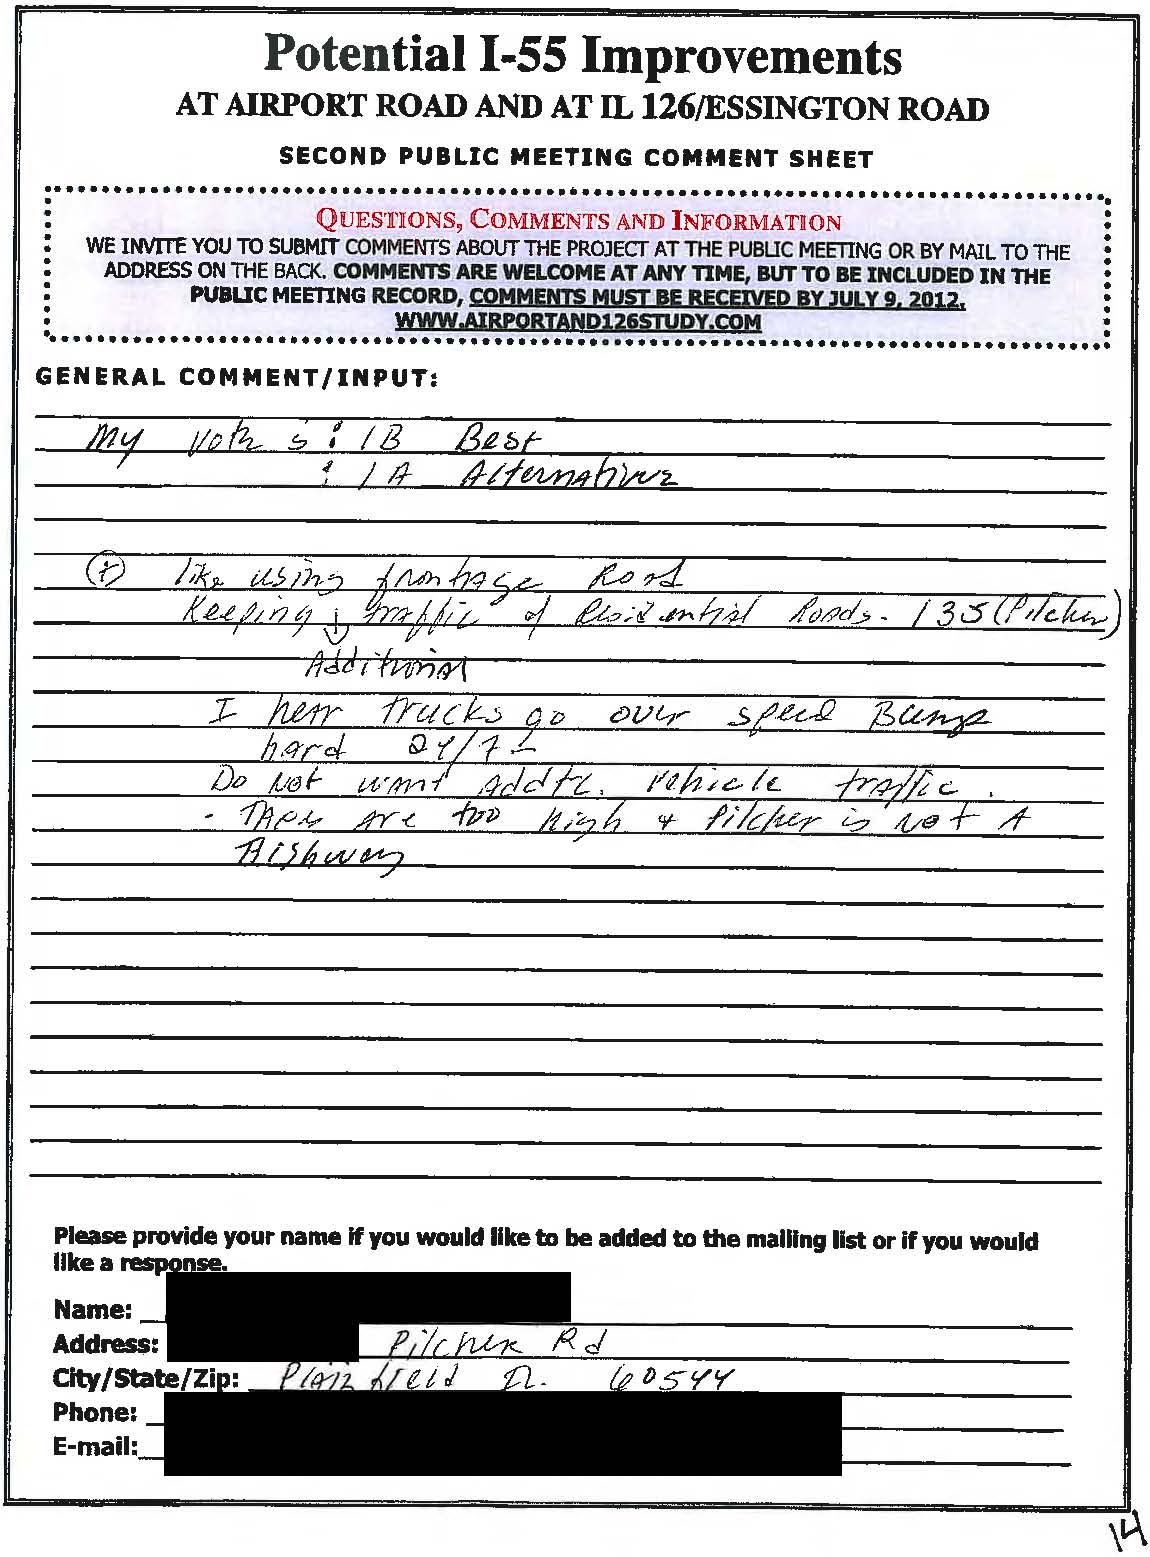 Potential I-55 Improvements
AT AIRPORT ROAD AND AT IL 126/ESSINGTON ROAD
SECOND PUBLIC MEETING COMMENT SHEET
QUESTIONS, COMMENTS AND INFORMATION
WE INVITE YOU TO SUBMIT COMMENTS ABOUT THE PROJECT AT THE PUBLIC MEETING OR BY MAIL TO THE
ADDRESS ON THE BACK. COMMENTS ARE WELCOME AT ANY TIME, BUT TO BE INCLUDED IN THE
PUBLIC MEETING RECORD, COMMENTS MUST BE RECEIVED BY JULY 9, 2012.
WWW.AIRPORTAND126STUDY.COM
GENERAL COMMENT/INPUT:
My Vote s : 1B Best
: 1A Alternative
(+) like using frontage Road
Keeping ↓ traffic of Residential Roads. 135 (Pilcher)
Additional
I hear trucks go over speed Bumps
hard 24/7
Do Not want Addtl. vehicle traffic.
- are too high + Pilcher is Not A
Highway
Please provide your name if you would like to be added to the mailing list or if you would
like a response.
Name:
Address: Pilcher Rd
City/State/Zip: Plainfield IL. 60544
Phone:
E-mail:
14